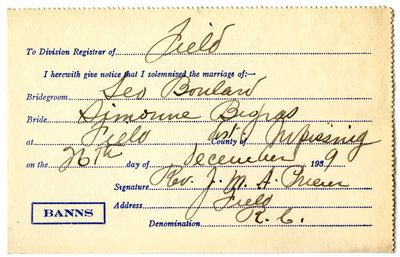 To Division Registrar of Field
I herewith give notice that I solemnized the marriage of:—
Bridegroom Leo Boulard
Bride Simonne Bigras
at Field Dist. County of Nipissing
on the 26th day of December 1939
Signature Rev. J. M. A.
Address Field
BANNS
Denomination R. C.